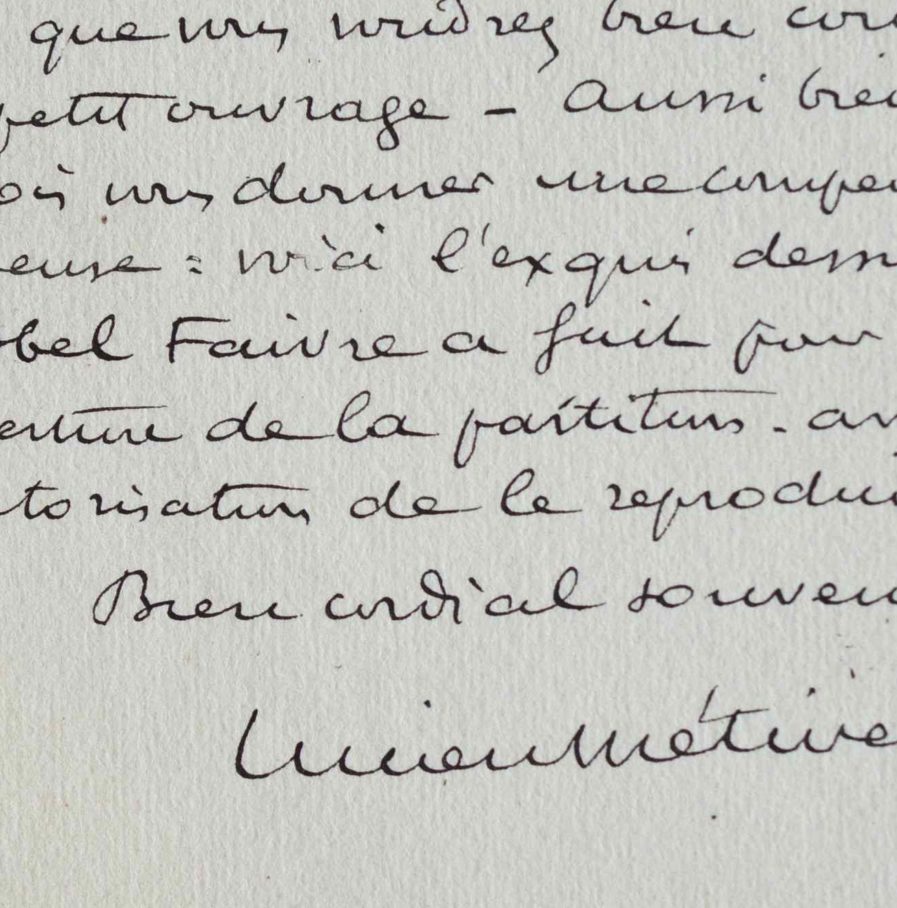 que vous voudrez bien con
petit ouvrage - Aussi bien
ois vous donner une compen
euse : voici l'exquis dess
bel Faivre a fait pour
erture de la partition - av
torisation de le reprodui
Bien cordial souven
Lucien Métive